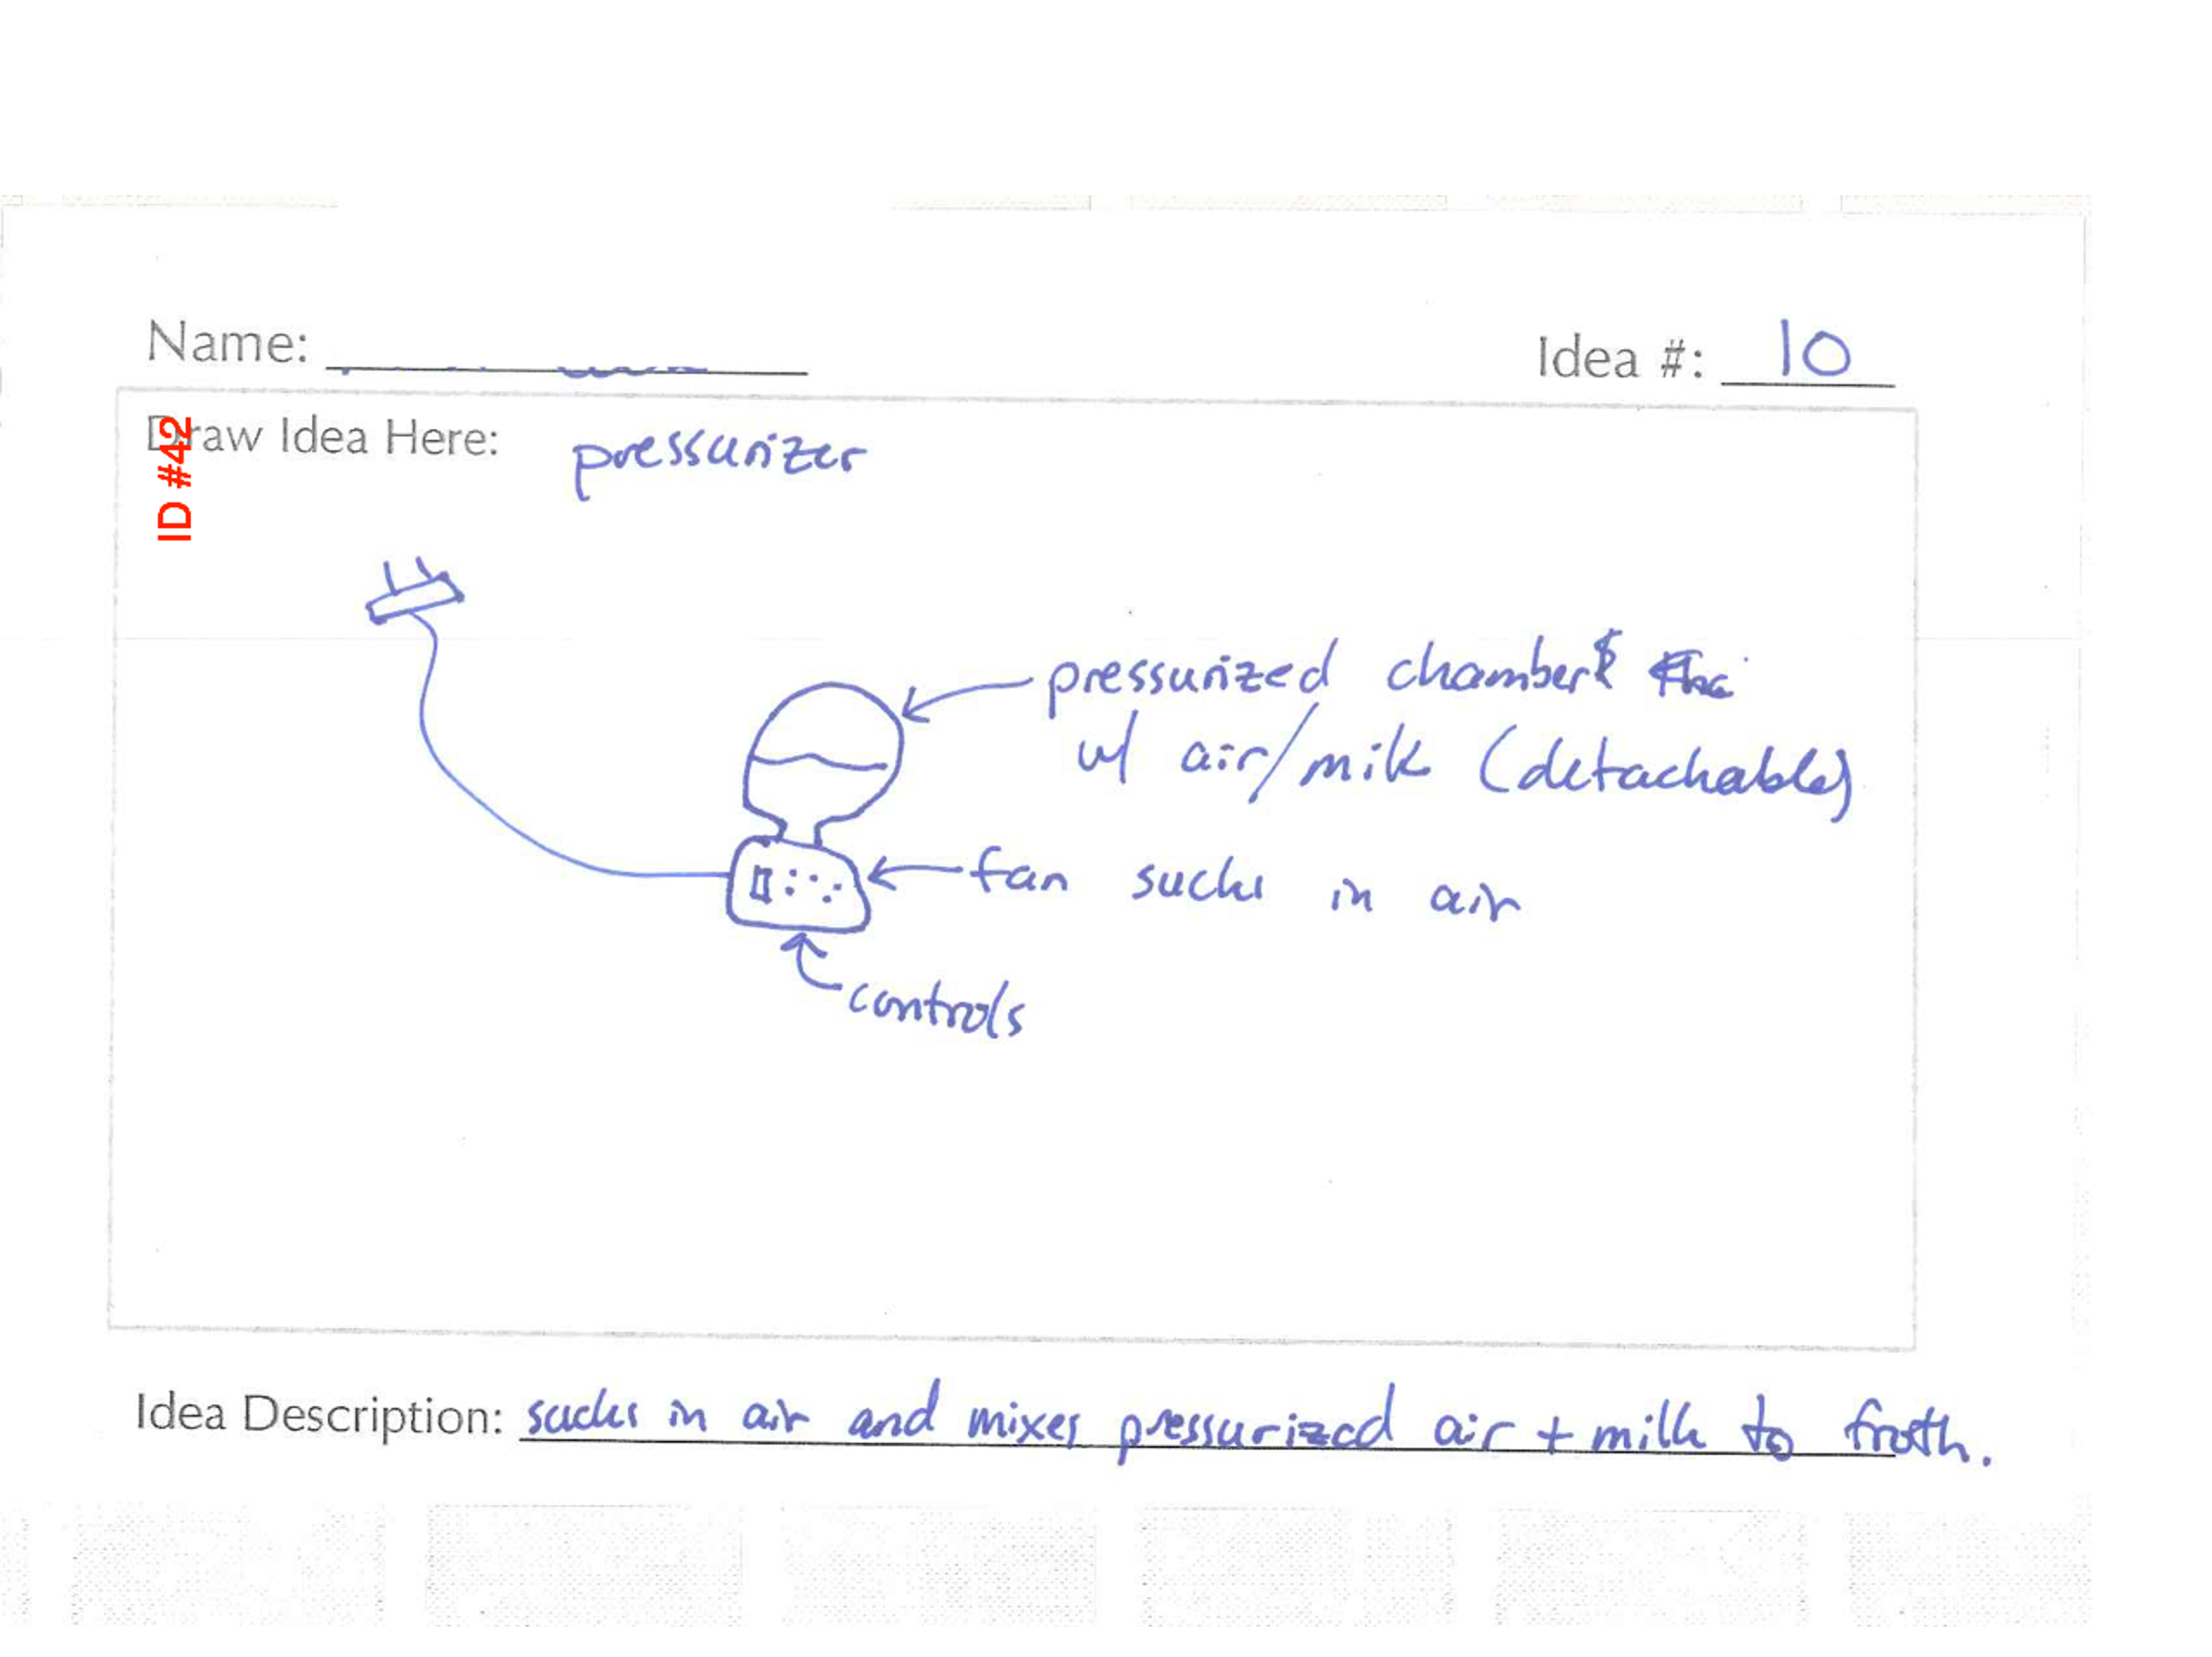 Name:
Idea #: 10
Draw Idea Here: pressurizer
ID #42
pressurized chamber
w/ air/milk (detachable)
fan sucks in air
controls
Idea Description: sucks in air and mixes pressurized air + milk to froth.